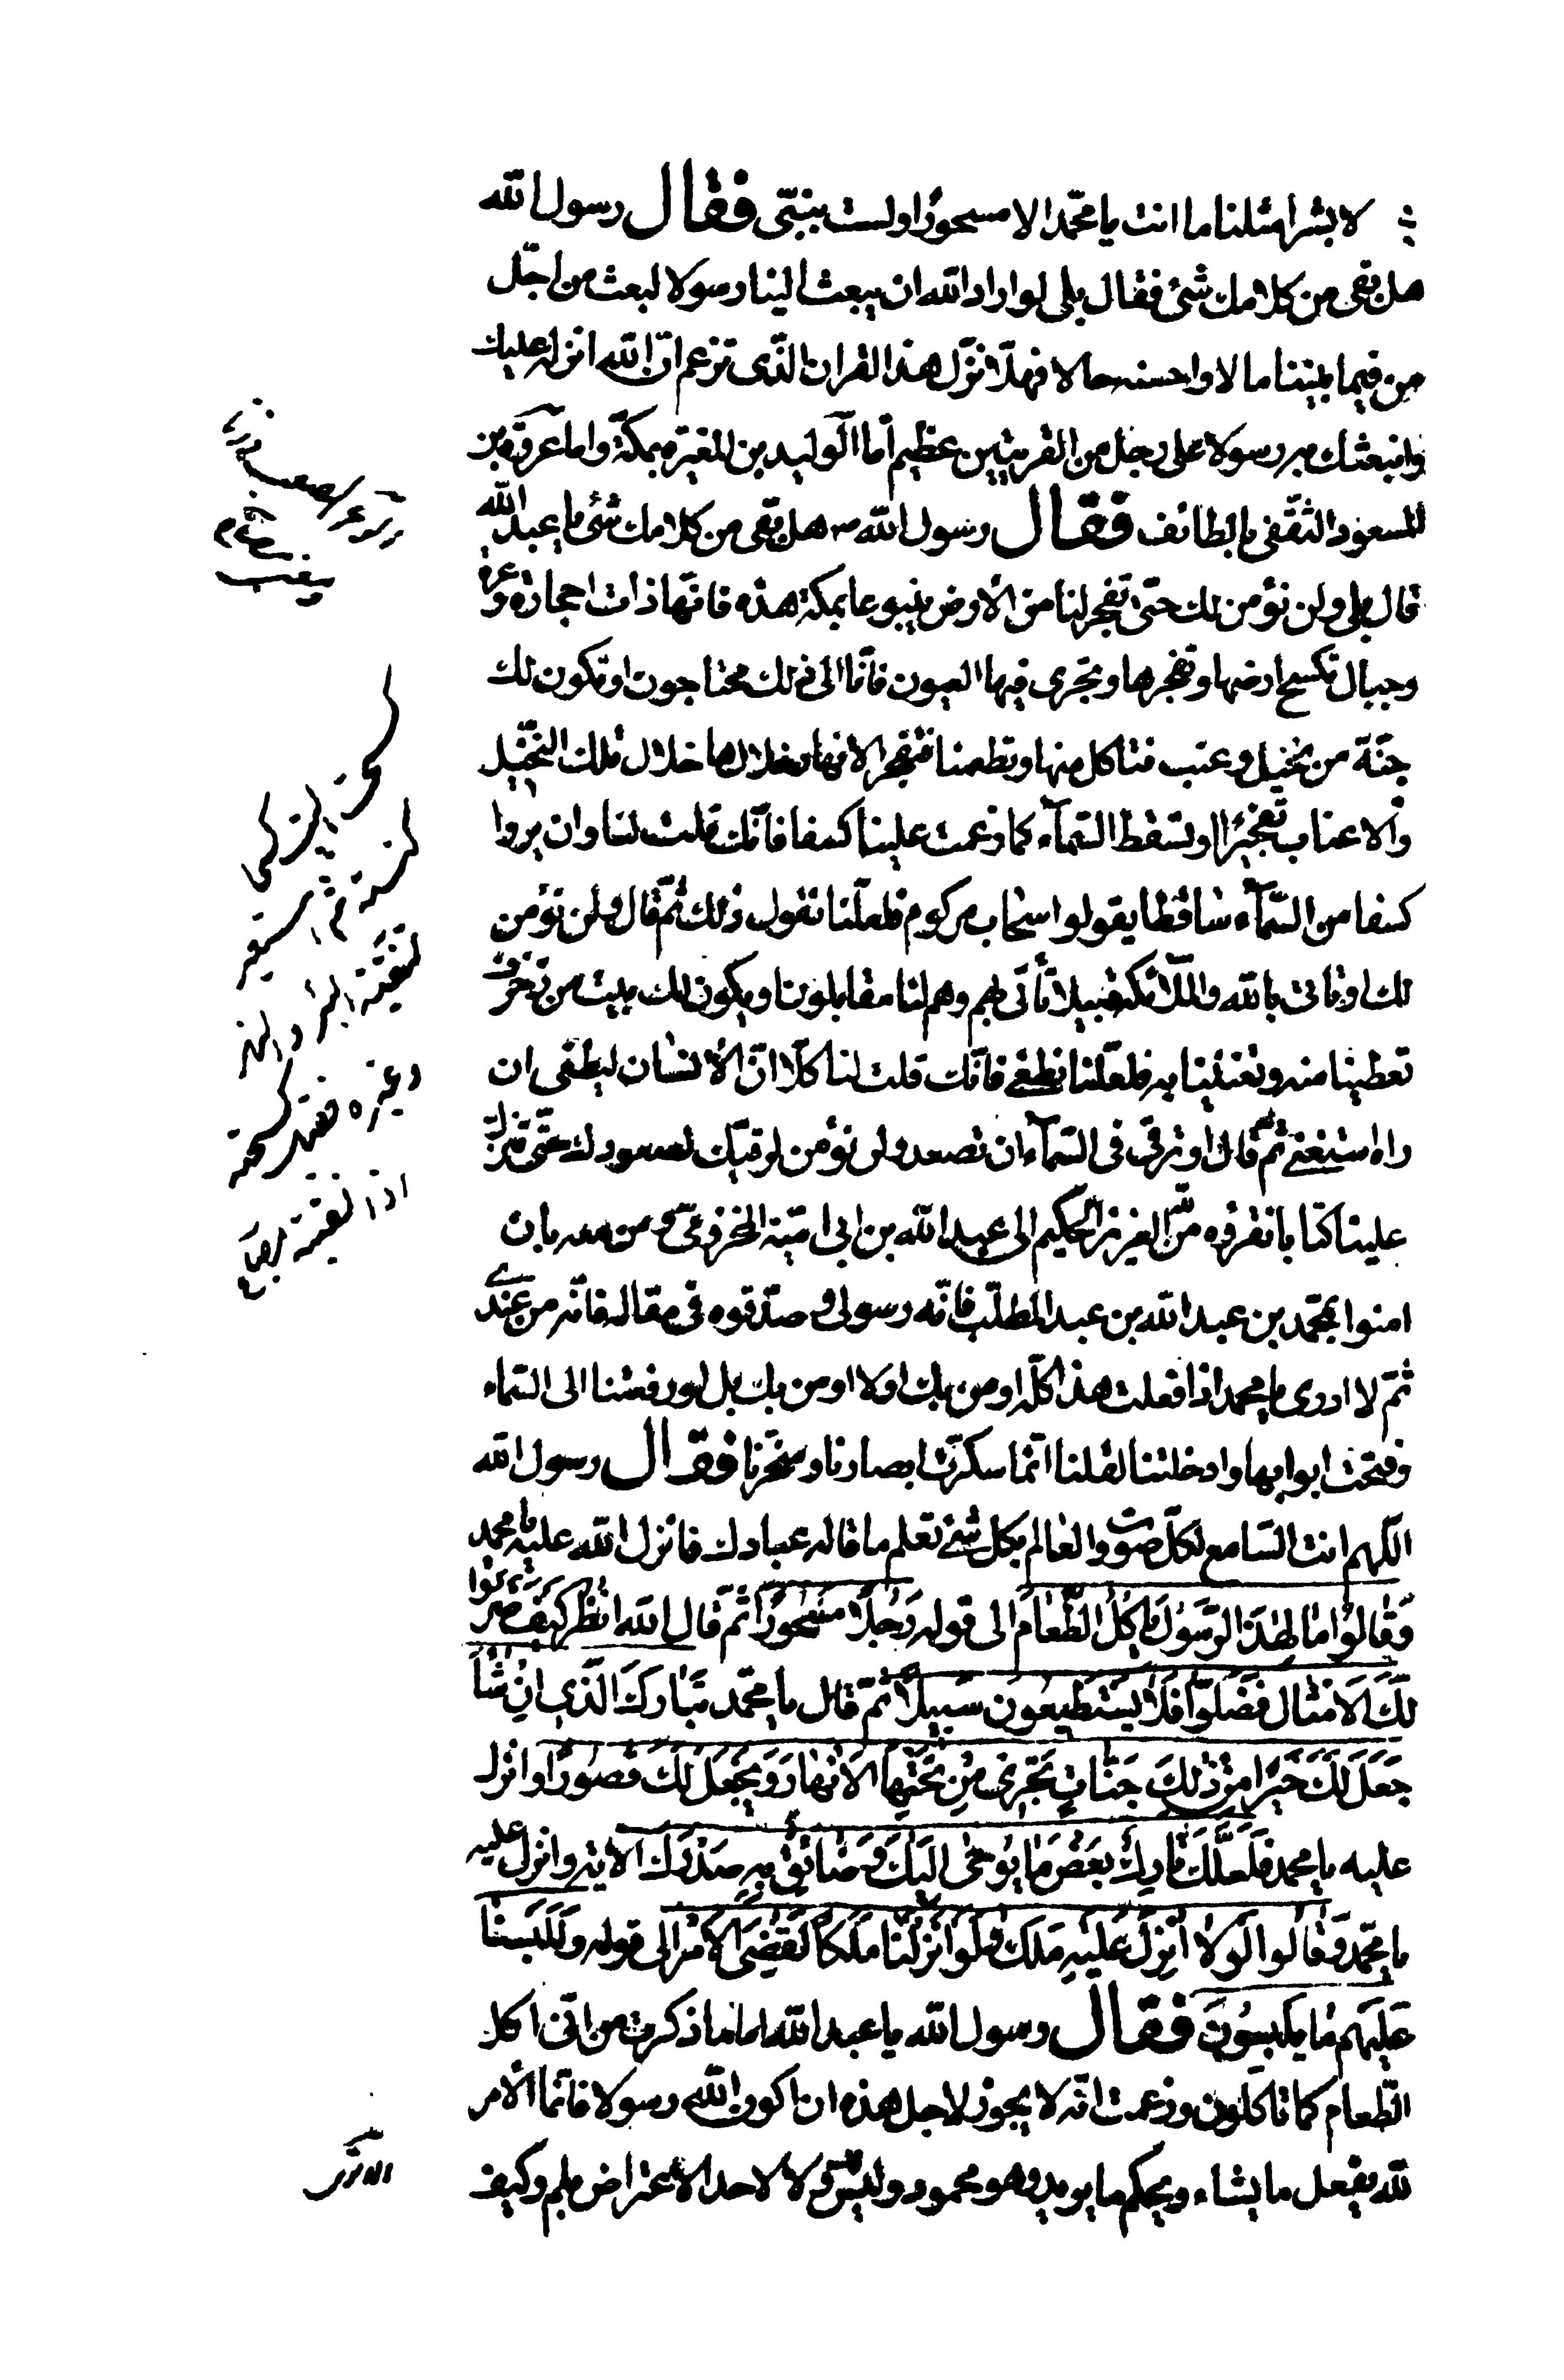 لا بشرا مثلنا ما انت يا محمّد الا مسحورا ولست بنبىّ فقال رسول الله
هل بقى من كلامك شئ فقال بلى لو اراد الله ان يبعث الينا رسولا لبعث من اجّل
من فيما بيننا مالا واحسنه حالا فهلّا نزّل هذا القران الّذى تزعم انّ الله انزله عليك
وانبعثك به رسولا على رجل من القريتين عظيم امّا الوليد بن المغيرة بمكّة واما عروة بن
المسعود الثقفى بالطائف فقال رسول الله ص هل بقى من كلامك شئ يا عبد الله
قال بلى ولن نؤمن لك حتّى تفجر لنا من الأرض ينبوعا بمكة هذه فانّها ذات احجارة وعرة
وجبال تكسح ارضها وتفجرها وتجرى فيها العيون فانّنا الى ذلك محتاجون او تكون لك
جنّة من نخيل وعنب فتاكل منها وتطعمنا فتفجر الانهار خلالها خلال تلك النخيل
والاعناب تفجيرا او تسقط السّمآء كما زعمت علينا كسفا فانّك قلت لنا وان يروا
كسفا من السّمآء ساقطا يقولوا سحاب مركوم فلعلّنا نقول ذلك ثمّ قال ولن نؤمن
لك او تاتى بالله والملائكة قبيلا تأتى بهم وهم لنا مقابلون او يكون لك بيت من زخرف
تعطينا منه وتغنينا به فلعلّنا نطغى فانّك قلت لنا كلّا انّ الأنسان ليطغى ان
راه استغنى ثم قال او ترقى فى السّمآء ان تصعد ولن نؤمن لرقيّك لصعودك حتّى تنزّل
علينا كتابا نقرؤه من الله العزيز الحكيم الى عبد الله بن ابى اميّة المخزومىّ ومن معه بان
امنوا بمحمّد بن عبد الله بن عبد المطلّب فانّه رسولى وصدّقوه فى مقاله فانّه من عندى
ثمّ لا ادرى يا محمد اذا فعلت هذا كلّه اومن بك اولا اومن بك بل لو رفعتنا الى السّماء
وفتحت ابوابها وادخلتنا لقلنا انّما سكرّت ابصارنا وسحّرنا فقال رسول الله
اللّهم انت السّامع لكلّ صوت والعالم بكل شئ تعلم ما قاله عبادك فانزل الله عليه يا محمد
وَقالُوا مالِهٰذَا الرَّسُولِ يَاْكُلُ الطَّعامَ الى قوله رَجُلًا مَسْحُورًا ثمّ قال الله انظر كيف ضربوا
لَكَ الْاَمْثالَ فَضَلُّوا فَلا يَسْتَطيعُونَ سَبيلًا ثمّ قال يا محمّد تَبارَكَ الَّذى اِنْ شاءَ
جَعَلَ لَكَ خَيْرًا مِنْ ذلِكَ جَنّاتٍ تَجْرى مِنْ تَحْتِهَا الْاَنْهارُ وَيَجْعَلْ لَكَ قُصُورًا وانزل
عليه يا محمد فَلَعَلَّكَ تارِكٌ بَعْضَ ما يُوحٰى اِلَيْكَ وَضائِقٌ بِهِ صَدْرُكَ الاية وانزل عليه
يا محمّد وَقالُوا لَوْلا اُنْزِلَ عَلَيْهِ مَلَكٌ وَلَوْ اَنْزَلْنا مَلَكًا لَقُضِىَ الْاَمْرُ الى قوله وَلَلَبَسْنا
عَلَيْهِمْ ما يَلْبِسُونَ فقال رسول الله يا عبد الله اما ما ذكرت من انّى اكل
الطّعام كما تاكلون وزعمت انّه لا يجوز لاجل هذه ان اكون لله رسولا فانّما الأمر
لله يفعل ما يشاء ويحكم ما يريد وهو محمود وليس لك ولا لاحد الاعتراض بلم وكيف